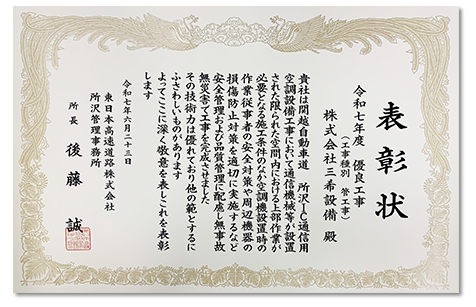 表彰状
令和七年度 優良工事
(工事種別 管工事)
株式会社三希設備 殿
貴社は関越自動車道 所沢IC通信用
空調設備工事において通信機械等が設置
された限られた空間内における上部作業が
必要となる施工条件のなか空調機設置時の
作業従事者の安全対策や周辺機器の
損傷防止対策を適切に実施するなど
安全管理および品質管理に配慮し無事故
無災害で工事を完成させました
その技術力は優れており他の範とするに
ふさわしいものがあります
よってここに深く敬意を表しこれを表彰
します
令和七年六月二十三日
東日本高速道路株式会社
所沢管理事務所
所長 後藤 誠